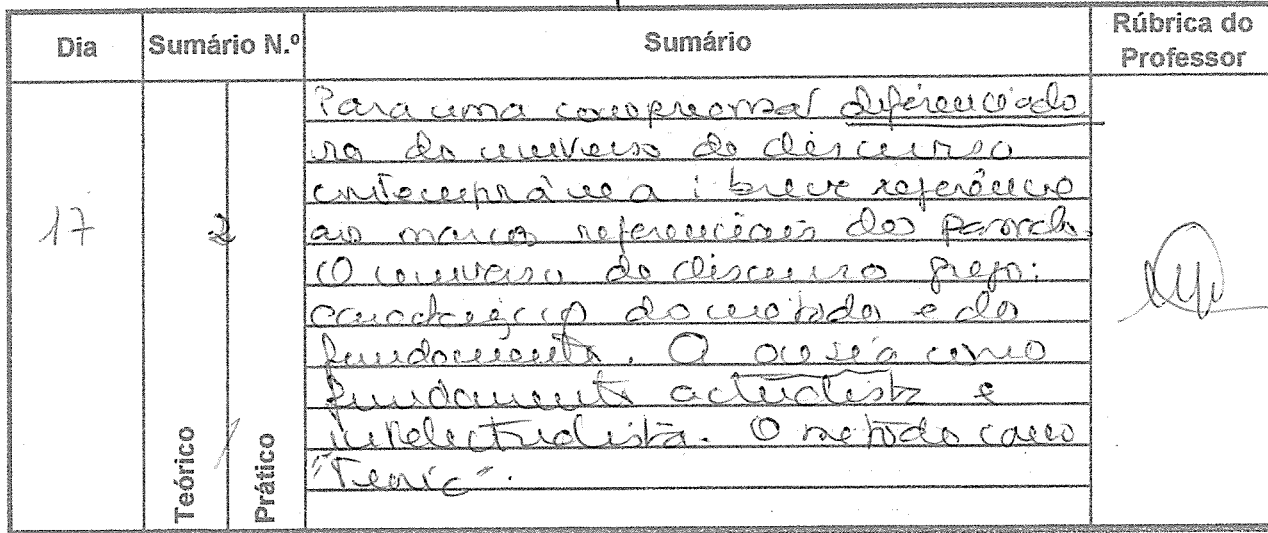 Dia Sumário N.º Sumário Rúbrica do Professor
17 2
Teórico Prático
Para uma compreensão diferenciado
ra do universo do discurso
contemporânea : breve referência
aos marcos referenciais do
O universo do discurso grego:
do método e do
fundamento. O como
fundamento actualista e
intelectualista. O método como
"Teoria".